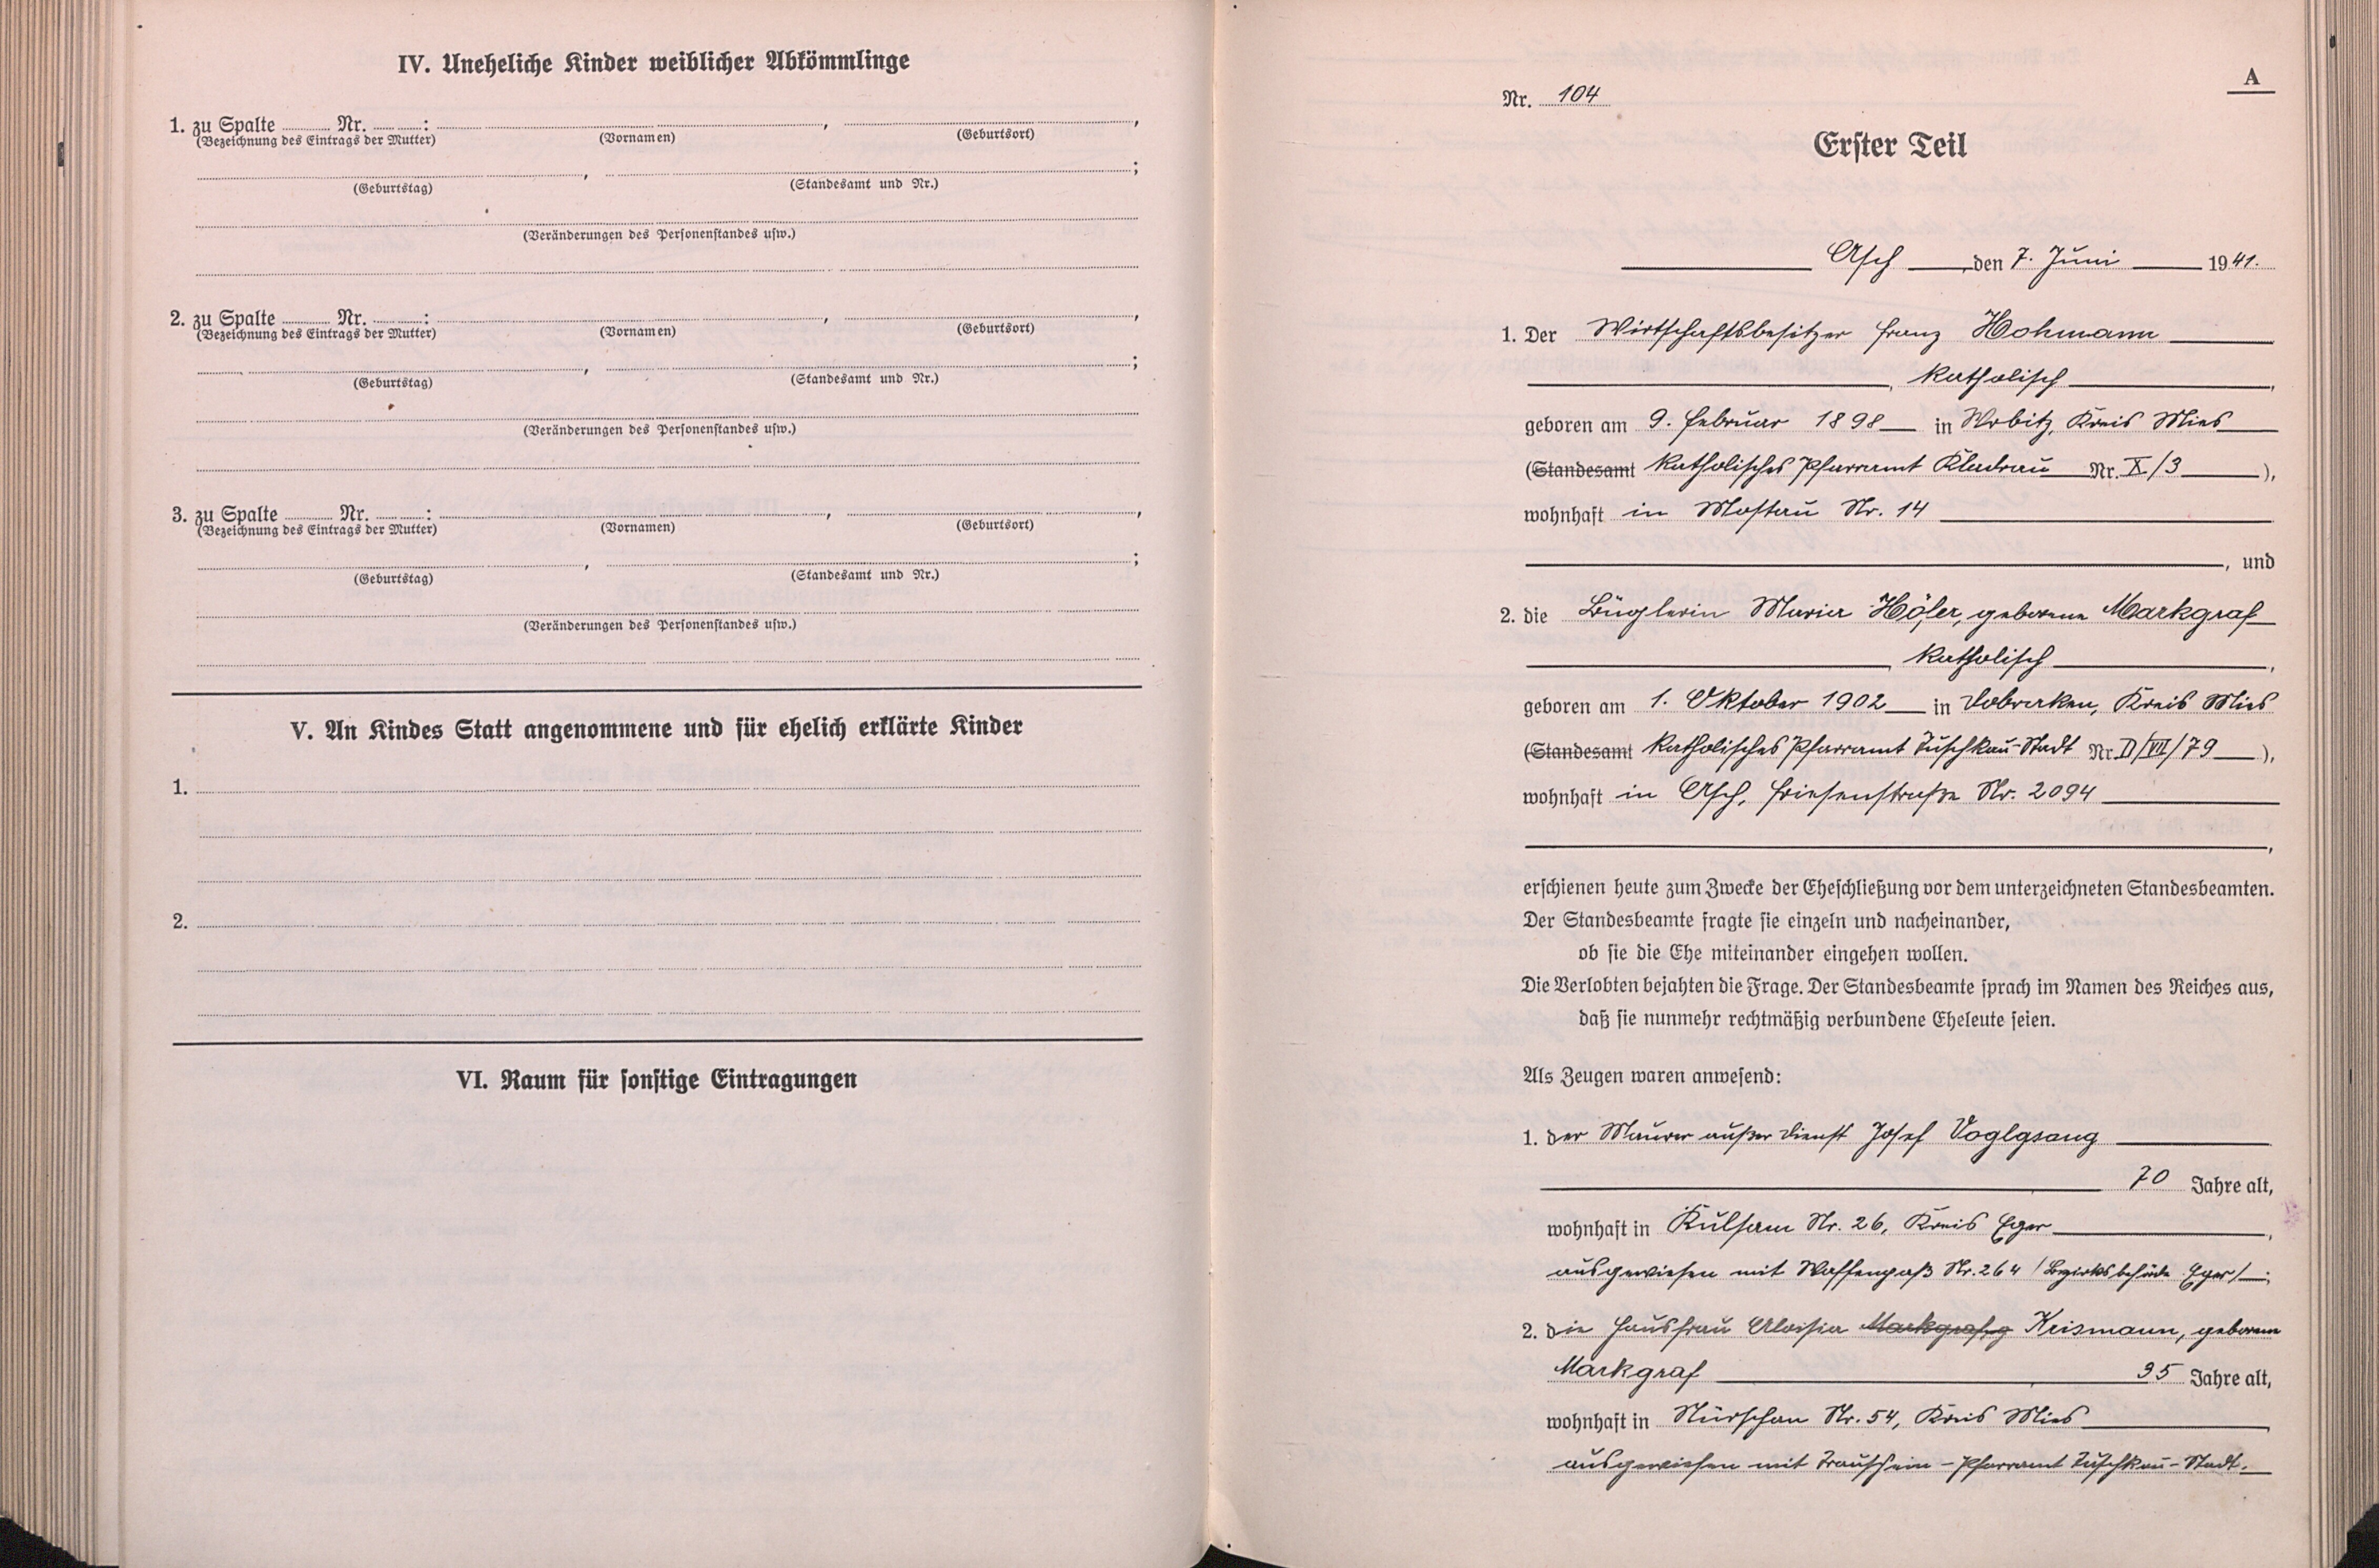 IV. Uneheliche Kinder weiblicher Abkömmlinge
1. zu Spalte Nr. : , ,
(Bezeichnung des Eintrags der Mutter) (Vornamen) (Geburtsort)
, ;
(Geburtstag) (Standesamt und Nr.)
(Veränderungen des Personenstandes usw.)
2. zu Spalte Nr. : , ,
(Bezeichnung des Eintrags der Mutter) (Vornamen) (Geburtsort)
, ;
(Geburtstag) (Standesamt und Nr.)
(Veränderungen des Personenstandes usw.)
3. zu Spalte Nr. : , ,
(Bezeichnung des Eintrags der Mutter) (Vornamen) (Geburtsort)
, ;
(Geburtstag) (Standesamt und Nr.)
(Veränderungen des Personenstandes usw.)
V. An Kindes Statt angenommene und für ehelich erklärte Kinder
1.
2.
VI. Raum für sonstige Eintragungen
A
Nr. 104
Erster Teil
Asch, den 7. Juni 1941.
1. Der Wirtschaftsbesitzer Franz Hohmann
, katholisch,
geboren am 9. Februar 1898 in Wrbitz, Kreis Mies
(Standesamt katholisches Pfarramt Kladrau Nr. X/3),
wohnhaft in Mostau Nr. 14
, und
2. die Büglerin Maria Höfer, geborene Markgraf
, katholisch,
geboren am 1. Oktober 1902 in Dobraken, Kreis Mies
(Standesamt katholisches Pfarramt Tuschkau-Stadt Nr. D/VII/79),
wohnhaft in Asch, Friesenstraße Nr. 2094
,
erschienen heute zum Zwecke der Eheschließung vor dem unterzeichneten Standesbeamten.
Der Standesbeamte fragte sie einzeln und nacheinander,
ob sie die Ehe miteinander eingehen wollen.
Die Verlobten bejahten die Frage. Der Standesbeamte sprach im Namen des Reiches aus,
daß sie nunmehr rechtmäßig verbundene Eheleute seien.
Als Zeugen waren anwesend:
1. der Maurer außer Dienst Josef Voglgsang
70 Jahre alt,
wohnhaft in Kulsam Nr. 26, Kreis Eger,
ausgewiesen mit Waffenpaß Nr. 264 /Bezirksbehörde Eger/;
2. die Hausfrau Aloisia Markgraf, g Krismann, geborene
Markgraf 35 Jahre alt,
wohnhaft in Nürschan Nr. 54, Kreis Mies,
ausgewiesen mit Trauschein - Pfarramt Tuschkau-Stadt.